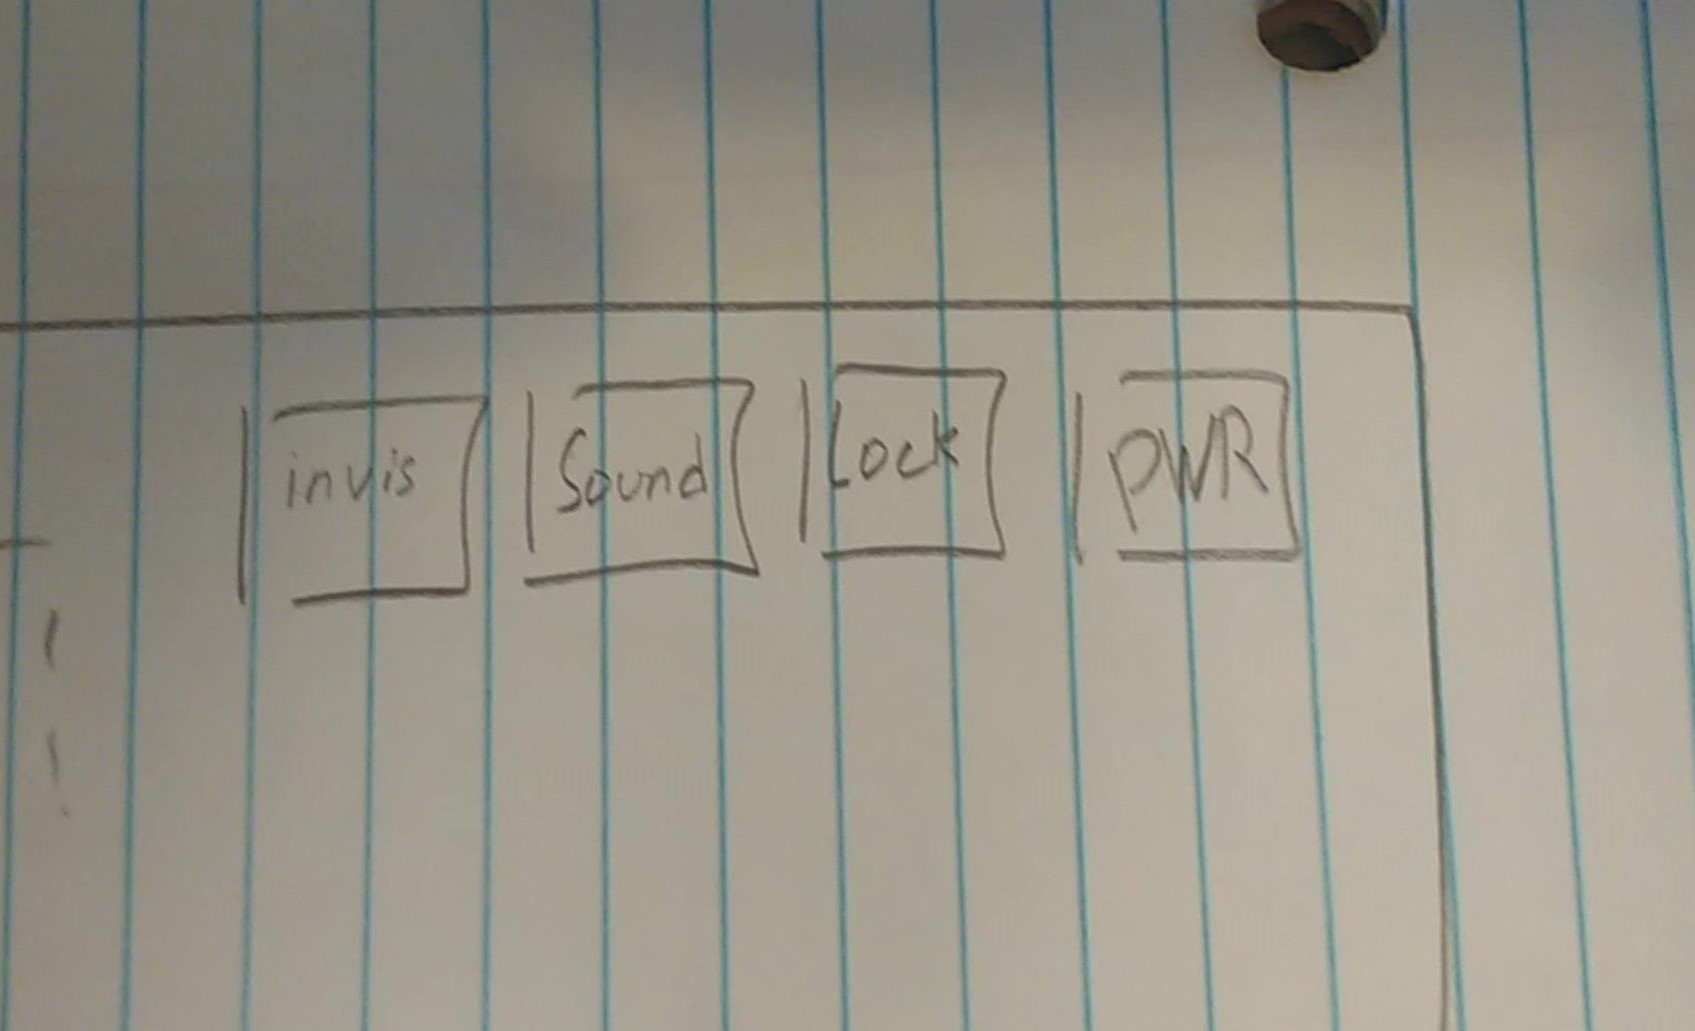 invis Sound Lock PWR